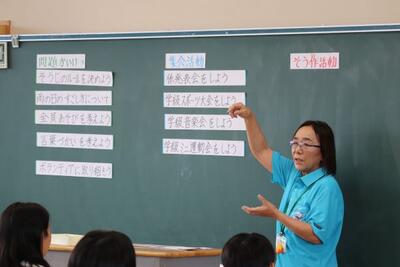 問題かいけつ
そうじのルールを決めよう
雨の日のすごし方について
全員あそびを考えよう
言葉づかいを考えよう
ボランティアに取り組もう
集会活動
係発表会をしよう
学級スポーツ大会をしよう
学級音楽会をしよう
学級ミニ運動会をしよう
そう作活動